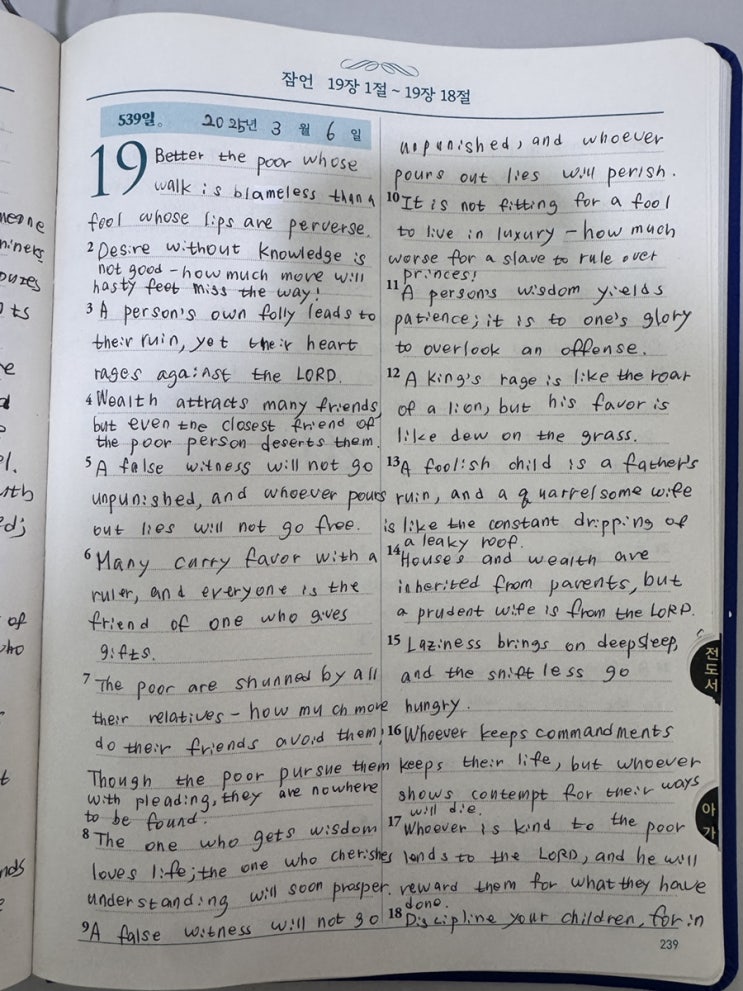 잠언 19장 1절 ~ 19장 18절
539일. 2025년 3월 6일
19 Better the poor whose
walk is blameless than a
fool whose lips are perverse.
2 Desire without knowledge is
not good - how much more will
hasty feet miss the way!
3 A person's own folly leads to
their ruin, yet their heart
rages against the LORD.
4 Wealth attracts many friends,
but even the closest friend of
the poor person deserts them.
5 A false witness will not go
unpunished, and whoever pours
out lies will not go free.
6 Many curry favor with a
ruler, and everyone is the
friend of one who gives
gifts.
7 The poor are shunned by all
their relatives - how much more
do their friends avoid them!
Though the poor pursue them
with pleading, they are nowhere
to be found.
8 The one who gets wisdom
loves life; the one who cherishes
understanding will soon prosper.
9 A false witness will not go
unpunished, and whoever
pours out lies will perish.
10 It is not fitting for a fool
to live in luxury - how much
worse for a slave to rule over
princes!
11 A person's wisdom yields
patience; it is to one's glory
to overlook an offense.
12 A king's rage is like the roar
of a lion, but his favor is
like dew on the grass.
13 A foolish child is a father's
ruin, and a quarrelsome wife
is like the constant dripping of
a leaky roof.
14 Houses and wealth are
inherited from parents, but
a prudent wife is from the LORD.
15 Laziness brings on deep sleep,
and the shiftless go
hungry.
16 Whoever keeps commandments
keeps their life, but whoever
shows contempt for their ways
will die.
17 Whoever is kind to the poor
lends to the LORD, and he will
reward them for what they have
done.
18 Discipline your children, for in
239
전도서
아가